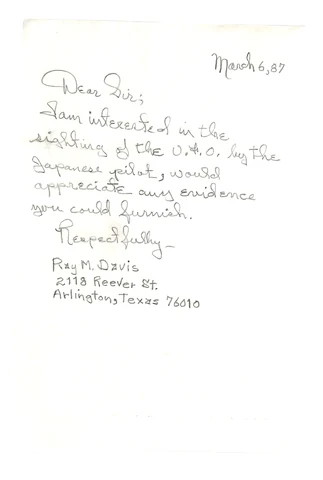 March 6, 87
Dear Sir;
I am interested in the
sighting of the U.F.O. by the
Japanese pilot, would
appreciate any evidence
you could furnish.
Respectfully—
Ray M. Davis
2118 Reever St.
Arlington, Texas 76010